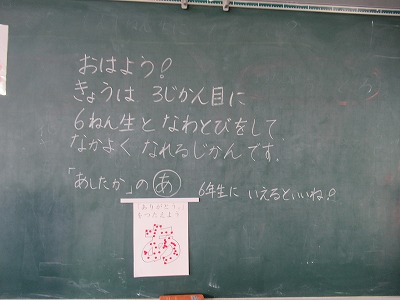 おはよう!
きょうは 3じかん目に
6ねん生と なわとびをして、
なかよく なれるじかんです。
「あしたか」の あ 6年生に いえるといいね!
「ありがとう」
をつたえよう